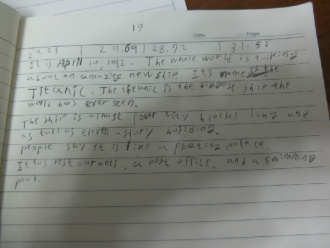 19
Date Page
29.23 | 29.69 | 28.92 | 31.52
It is April 10, 1912. The whole world is talking
about an amazing new ship. It's name is the
Titanic. The Titanic is the biggest ship the
world has ever seen.
The ship is almost four city blocks long and
as tall as eleven-story building.
people say it is like a floating palace.
It has restaurants, a post office, and a swimming
pool.